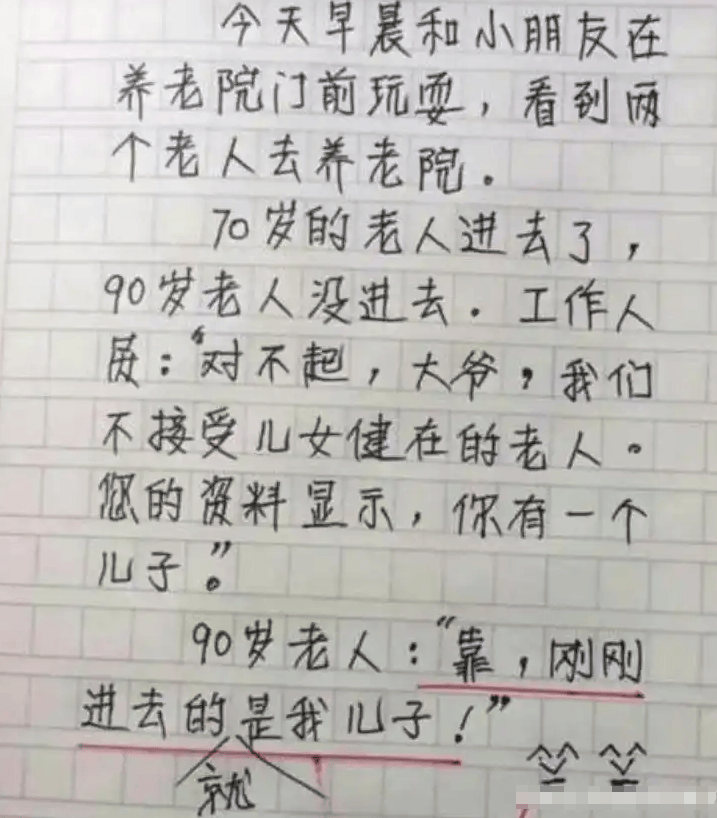 今天早晨和小朋友在
养老院门前玩耍，看到两
个老人去养老院。
70岁的老人进去了，
90岁老人没进去。工作人
员：“对不起，大爷，我们
不接受儿女健在的老人。
您的资料显示，你有一个
儿子。”
90岁老人：“靠，刚刚
进去的是我儿子！”
就